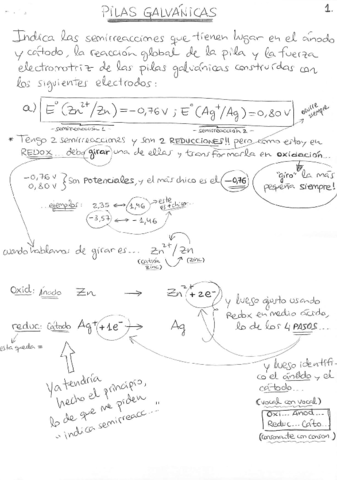 PILAS GALVÁNICAS
1.
Indica las semirreacciones que tienen lugar en el ánodo
y cátodo, la reacción global de la pila y la fuerza
electromotriz de las pilas galvánicas construidas con
los siguientes electrodos:
a) E°(Zn²⁺/Zn)=-0,76V ; E°(Ag⁺/Ag)=0,80V
siempre
- semirreacción 1 -
- semirreacción 2 -
* Tengo 2 semirreacciones y son 2 REDUCCIONES!! pero como estoy en
REDOX... debo girar una de ellas y transformarla en oxidación...
-0,76V
0,80V
} son Potenciales, y el más chico es el -0,76
"giro" la más
pequeña siempre!
ejemplos: 2,35 ↔ 1,46 → este
es el chico
-3,57 ↔ -1,46
cuando hablamos de girar es... Zn²⁺/Zn
(catión
zinc)
(zinc)
Oxid: Ánodo Zn → Zn²⁺+2e⁻
reduc: Cátodo Ag⁺+1e⁻ → Ag
y luego ajusto usando
Redox en medio ácido,
lo de los 4 PASOS...
esta queda =
Ya tendría
hecho el principio,
lo de que me piden
-indica semirreacc...
y luego identifi-
co el ánodo y el
cátodo...
(vocal con vocal)
Oxi... Ánod...
Reduc... Cáto...
(consonante con conson)